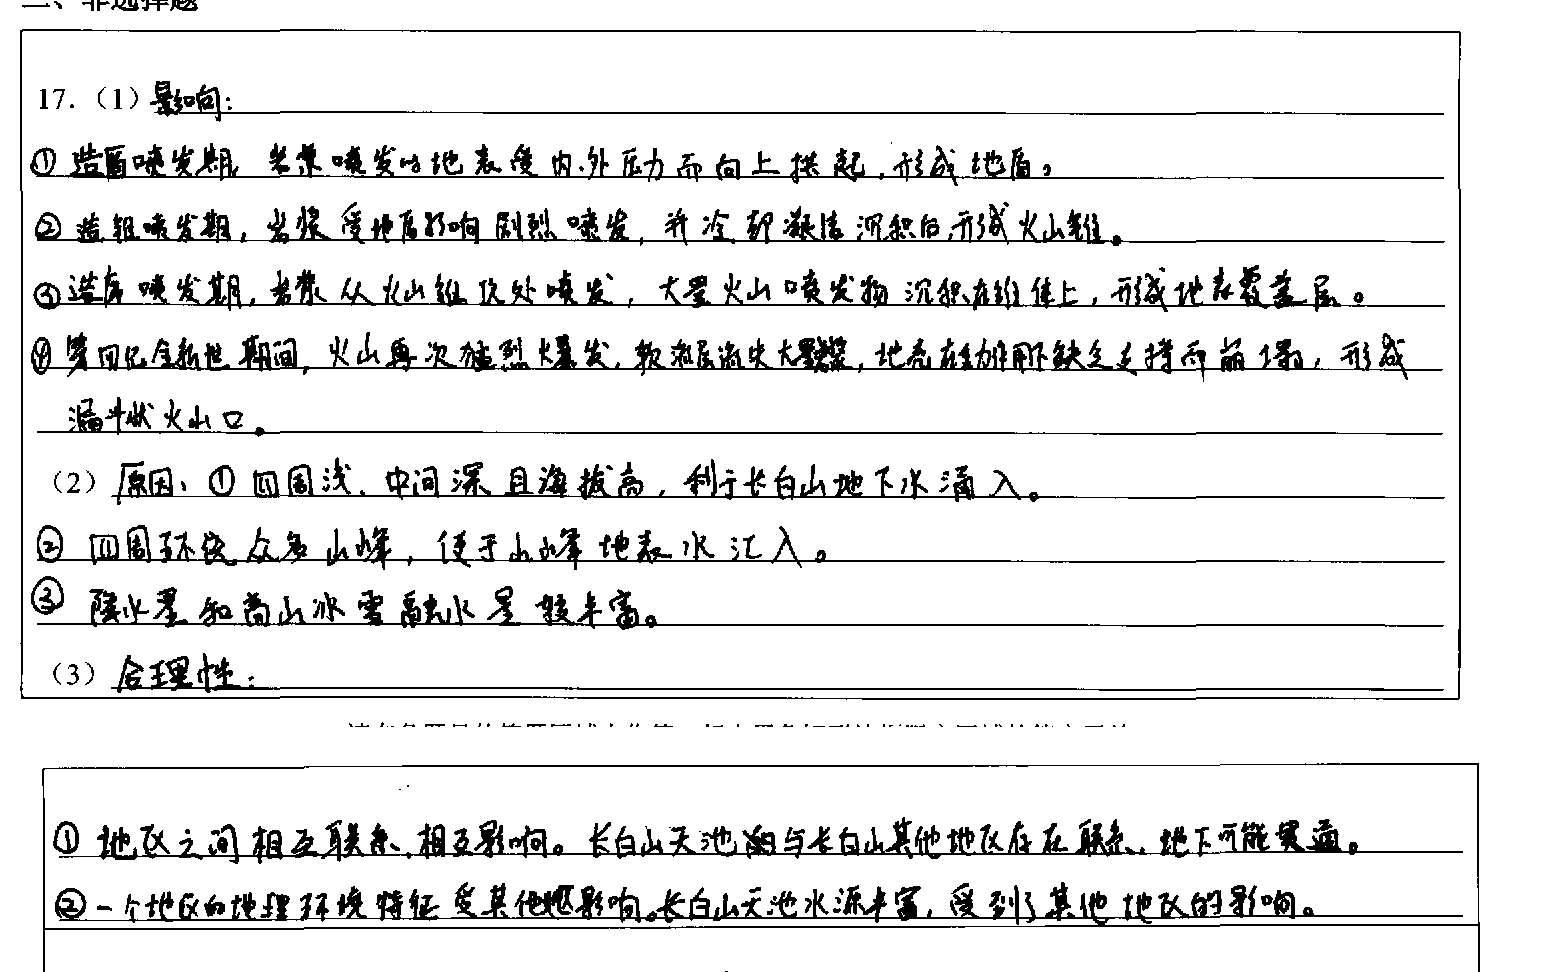 二、非选择题
17.（1）影响：
① 造盾喷发期，岩浆喷发时地表受内、外压力而向上拱起，形成地盾。
② 造锥喷发期，岩浆受地盾影响剧烈喷发，并冷却凝结沉积后，形成火山锥。
③ 造席喷发期，岩浆从火山锥顶处喷发，大量火山喷发物沉积在锥体上，形成地表覆盖层。
④ 第四纪全新世期间，火山再次猛烈爆发，软流层流失大量岩浆，地壳在重力作用下缺乏支撑而崩塌，形成
漏斗状火山口。
（2）原因：① 四周浅、中间深且海拔高，利于长白山地下水涌入。
② 四周环绕众多山峰，便于山峰地表水汇入。
③ 降水量和高山冰雪融水量较丰富。
（3）合理性：
① 地区之间相互联系、相互影响。长白山天池与长白山其他地区存在联系，地下可能贯通。
② 一个地区的地理环境特征受其他地区影响。长白山天池水源丰富，受到了其他地区的影响。